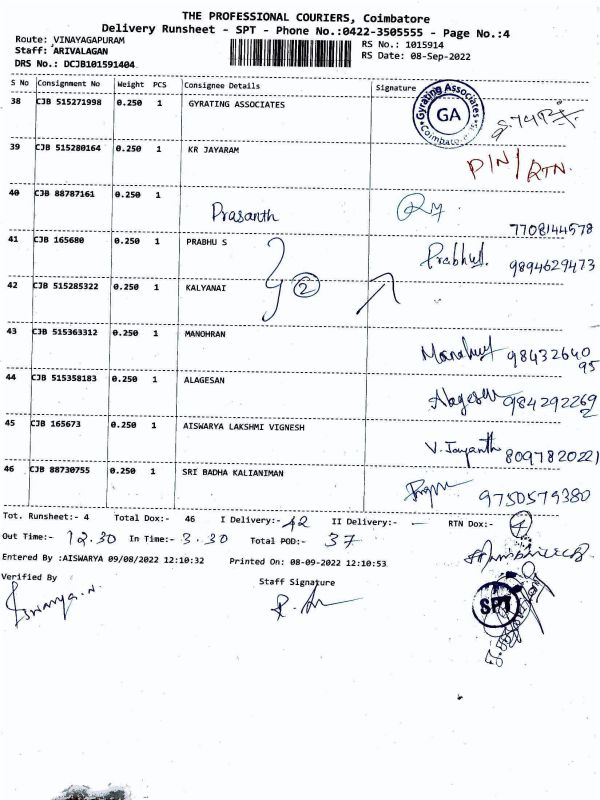 THE PROFESSIONAL COURIERS, Coimbatore
Delivery Runsheet - SPT - Phone No.:0422-3505555 - Page No.:4
Route: VINAYAGAPURAM
Staff: ARIVALAGAN
DRS No.: DCJB101591404
RS No.: 1015914
RS Date: 08-Sep-2022
S No Consignment No Weight PCS Consignee Details Signature
38 CJB 515271998 0.250 1 GYRATING ASSOCIATES
Gyrating Associates
GA
39 CJB 515280164 0.250 1 KR JAYARAM
D/N/RTN.
40 CJB 88787161 0.250 1
Prasanth
7708144578
41 CJB 165680 0.250 1 PRABHU S
Prabhu 9894629473
42 CJB 515285322 0.250 1 KALYANAI
2
43 CJB 515363312 0.250 1 MANOHRAN
98432640
95
44 CJB 515358183 0.250 1 ALAGESAN
Alagesan 984292269
2
45 CJB 165673 0.250 1 AISWARYA LAKSHMI VIGNESH
V. Jayanth 8097820221
46 CJB 88730755 0.250 1 SRI BADHA KALIANIMAN
9750579380
Tot. Runsheet:- 4 Total Dox:- 46 I Delivery:- 42 II Delivery:- — RTN Dox:- 4
Out Time:- 12.30 In Time:- 3.30 Total POD:- 37
Entered By :AISWARYA 09/08/2022 12:10:32 Printed On: 08-09-2022 12:10:53
Verified By Staff Signature
SPT